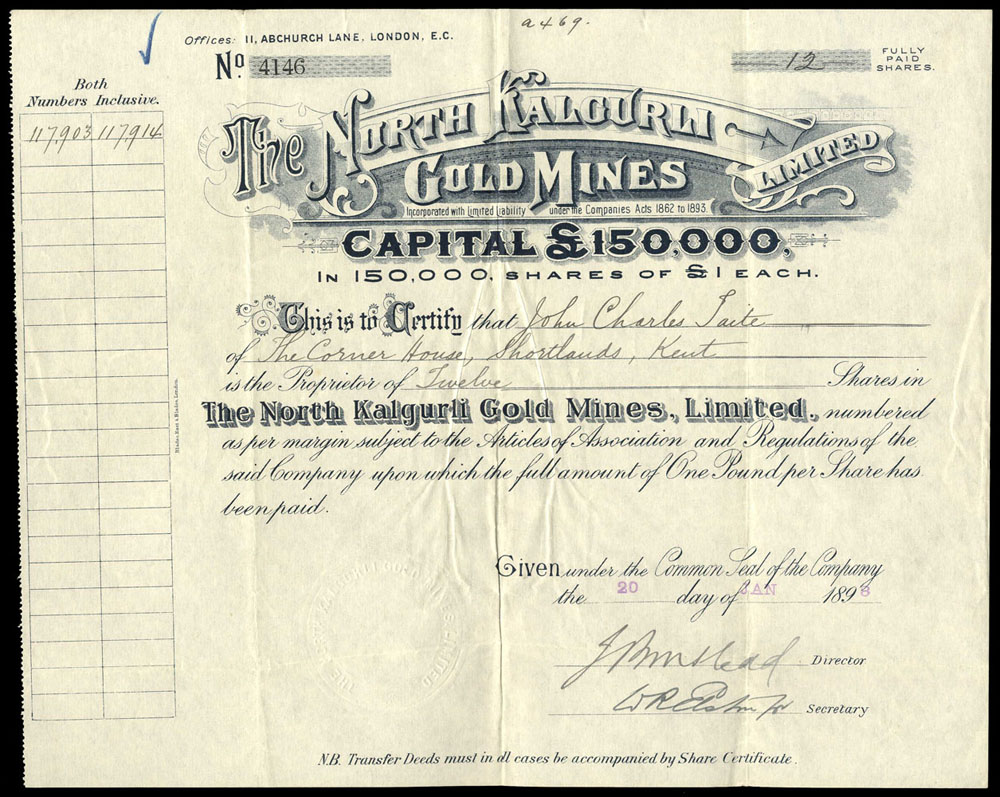 a469.
Offices: 11, ABCHURCH LANE, LONDON, E.C.
No. 4146
12 FULLY PAID SHARES.
Both
Numbers Inclusive.
117903 117914
The North Kalgurli
Gold Mines Limited
Incorporated with Limited Liability under the Companies Acts 1862 to 1893.
CAPITAL £150,000,
IN 150,000, SHARES OF £1 EACH.
This is to Certify that John Charles Taite
of The Corner House, Shortlands, Kent
is the Proprietor of Twelve Shares in
The North Kalgurli Gold Mines, Limited. numbered
as per margin subject to the Articles of Association and Regulations of the
said Company upon which the full amount of One Pound per Share has
been paid.
Given under the Common Seal of the Company
the 20 day of JAN 1898
Director
Secretary
N.B. Transfer Deeds must in all cases be accompanied by Share Certificate.
Blades, East & Blades, London.